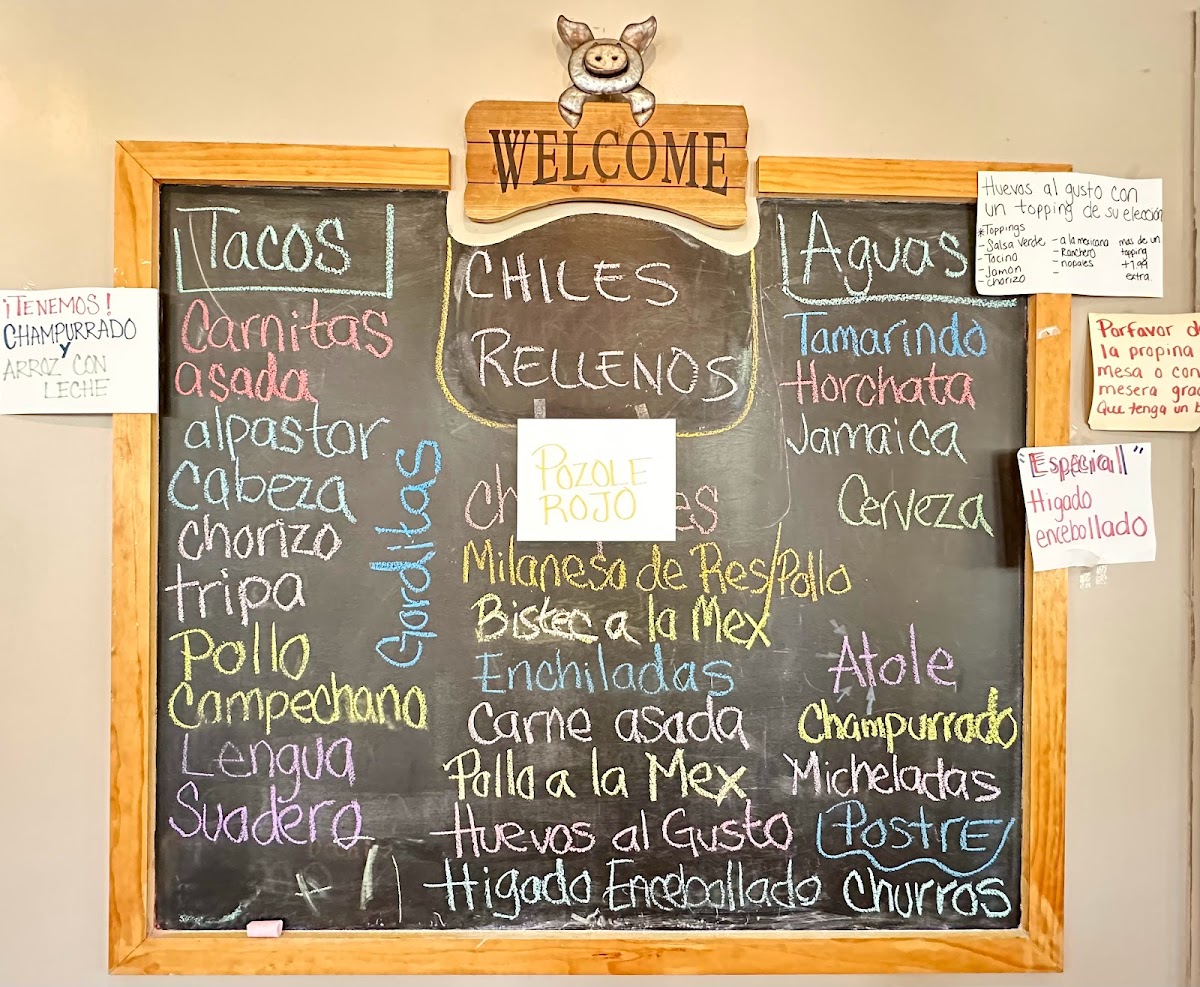 WELCOME
Tacos
Carnitas
asada
alpastor
Cabeza
Chorizo
tripa
Pollo
Campechano
Lengua
Suadero
Gorditas
CHILES
RELLENOS
POZOLE
ROJO
Milanesa de Res/Pollo
Bistec a la Mex
Enchiladas
Carne asada
Pollo a la Mex
Huevos al Gusto
Higado Encebollado
Aguas
Tamarindo
Horchata
Jamaica
Cerveza
Atole
Champurrado
Micheladas
Postre
Churros
¡TENEMOS!
CHAMPURRADO
Y
ARROZ CON
LECHE
Huevos al gusto con
un topping de su elección
*Toppings
- Salsa verde
- Tocino
- Jamón
- chorizo
- a la mexicana
- Ranchero
- nopales
-
mas de un
topping
+1.99
extra.
Porfavor
la propina
mesa o con
mesera
Que tenga un
"Especial"
Higado
encebollado